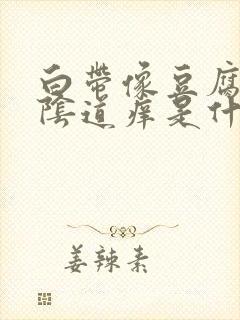 白带像豆腐
陰道痒是什
姜辣素